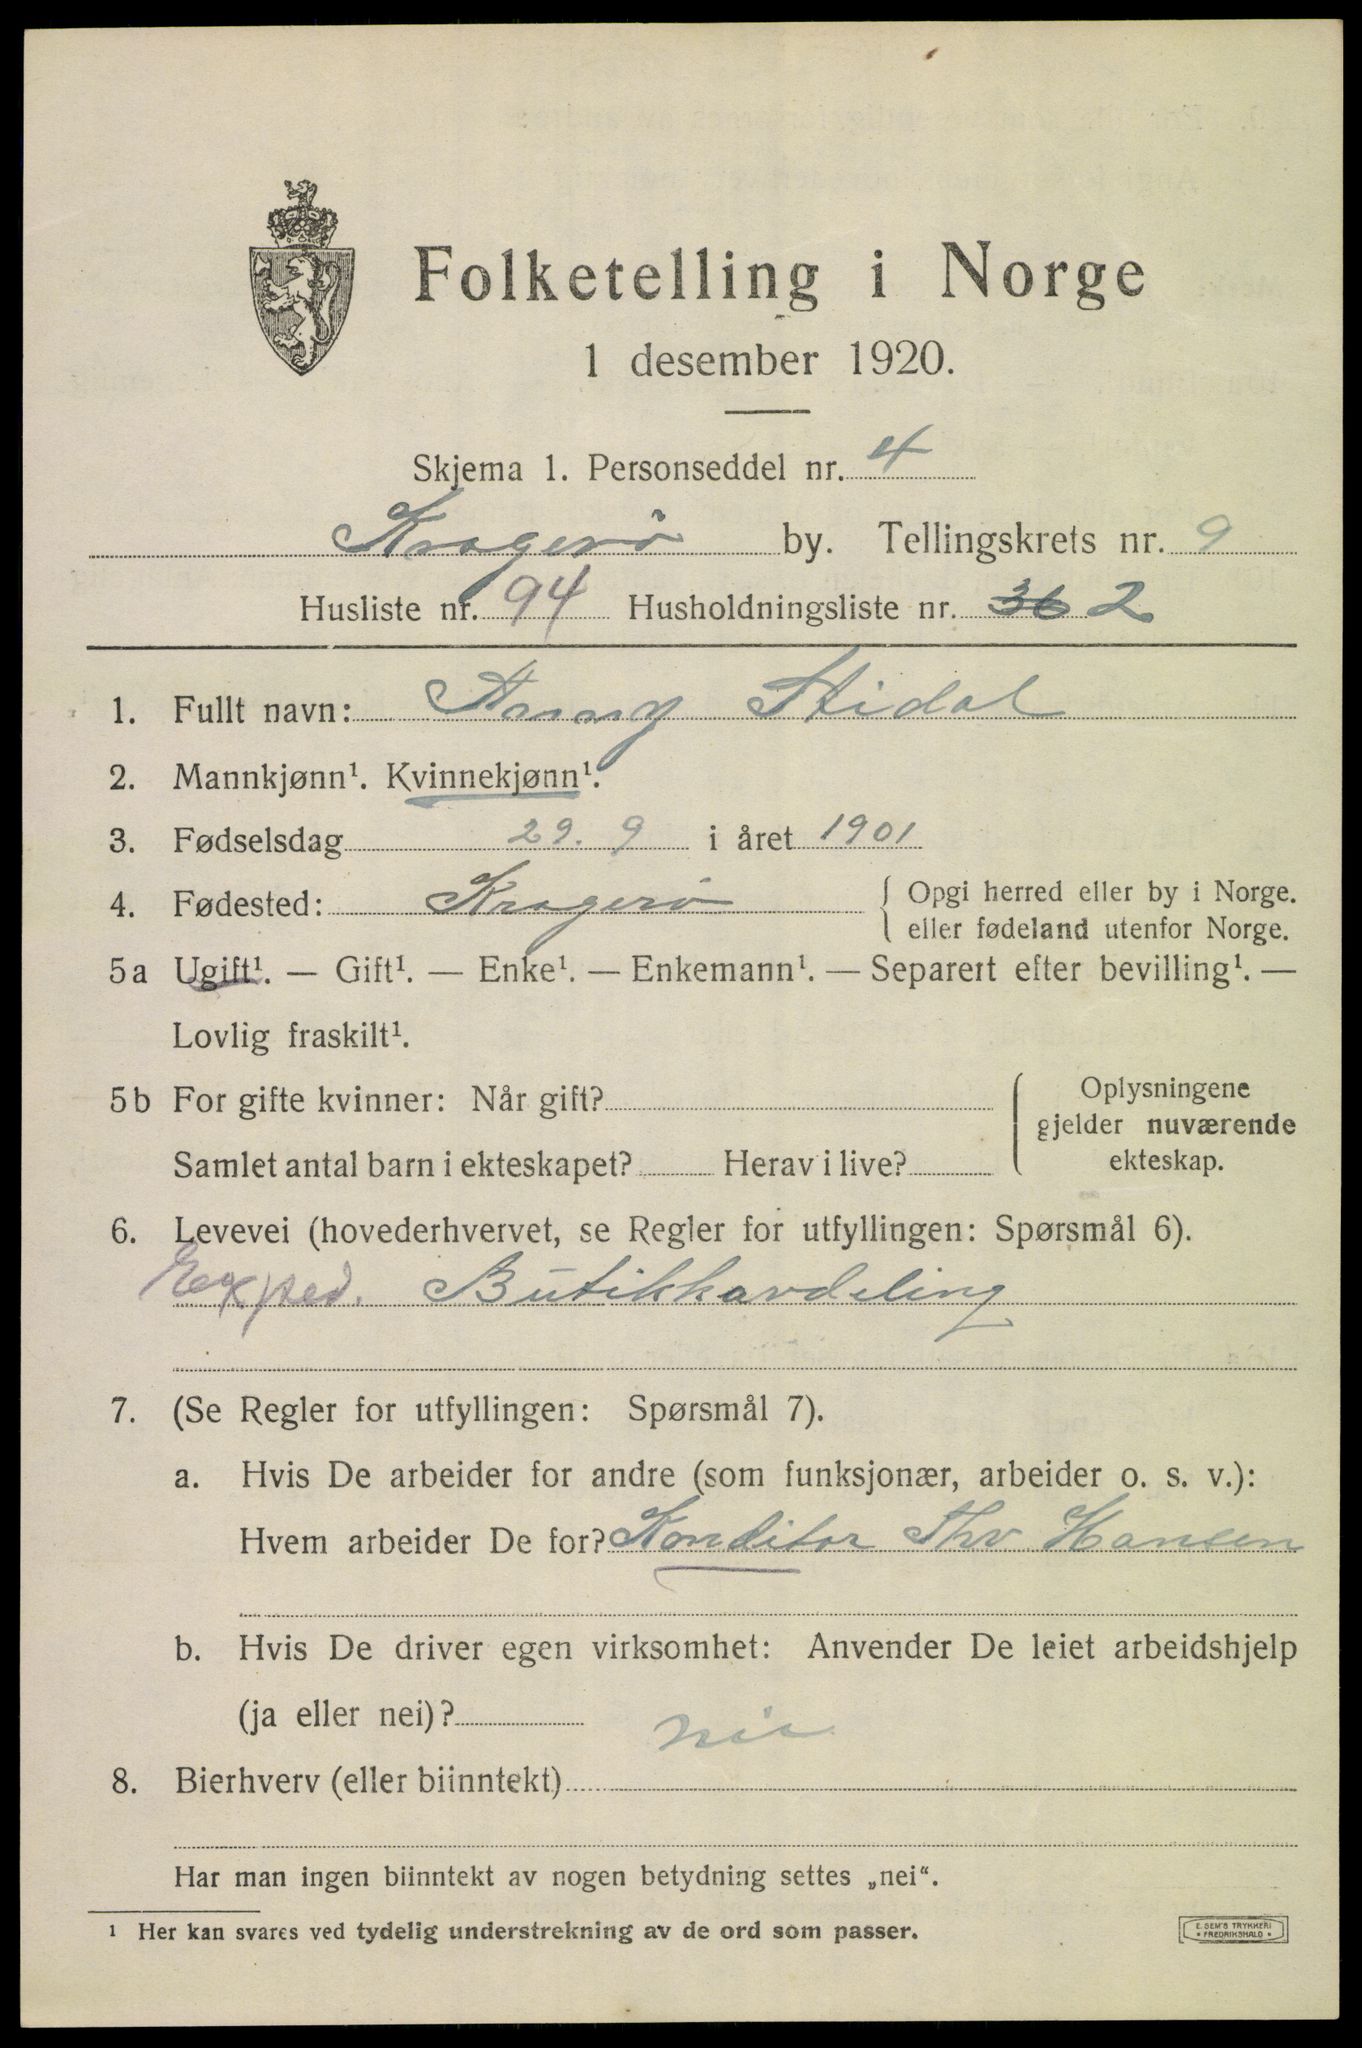 Folketelling i Norge
1 desember 1920.
Skjema 1. Personseddel nr. 4
Kragerø by. Tellingskrets nr. 9
Husliste nr. 94 Husholdningsliste nr. 36 2
1. Fullt navn: Anny Stidal
2. Mannkjønn¹. Kvinnekjønn¹.
3. Fødselsdag 29. 9 i året 1901
4. Fødested: Kragerø { Opgi herred eller by i Norge.
eller fødeland utenfor Norge.
5a Ugift¹. — Gift¹. — Enke¹. — Enkemann¹. — Separert efter bevilling¹. —
Lovlig fraskilt¹.
5b For gifte kvinner: Når gift? Oplysningene
gjelder nuværende
Samlet antal barn i ekteskapet? Herav i live? ekteskap.
6. Levevei (hovederhvervet, se Regler for utfyllingen: Spørsmål 6).
Exped. Butikkavdeling
7. (Se Regler for utfyllingen: Spørsmål 7).
a. Hvis De arbeider for andre (som funksjonær, arbeider o. s. v.):
Hvem arbeider De for? Konditor Thv Hansen
b. Hvis De driver egen virksomhet: Anvender De leiet arbeidshjelp
(ja eller nei)?
nei
8. Bierhverv (eller biinntekt)
Har man ingen biinntekt av nogen betydning settes „nei“.
¹ Her kan svares ved tydelig understrekning av de ord som passer.
E. SEM'S TRYKKERI
FREDRIKSHALD